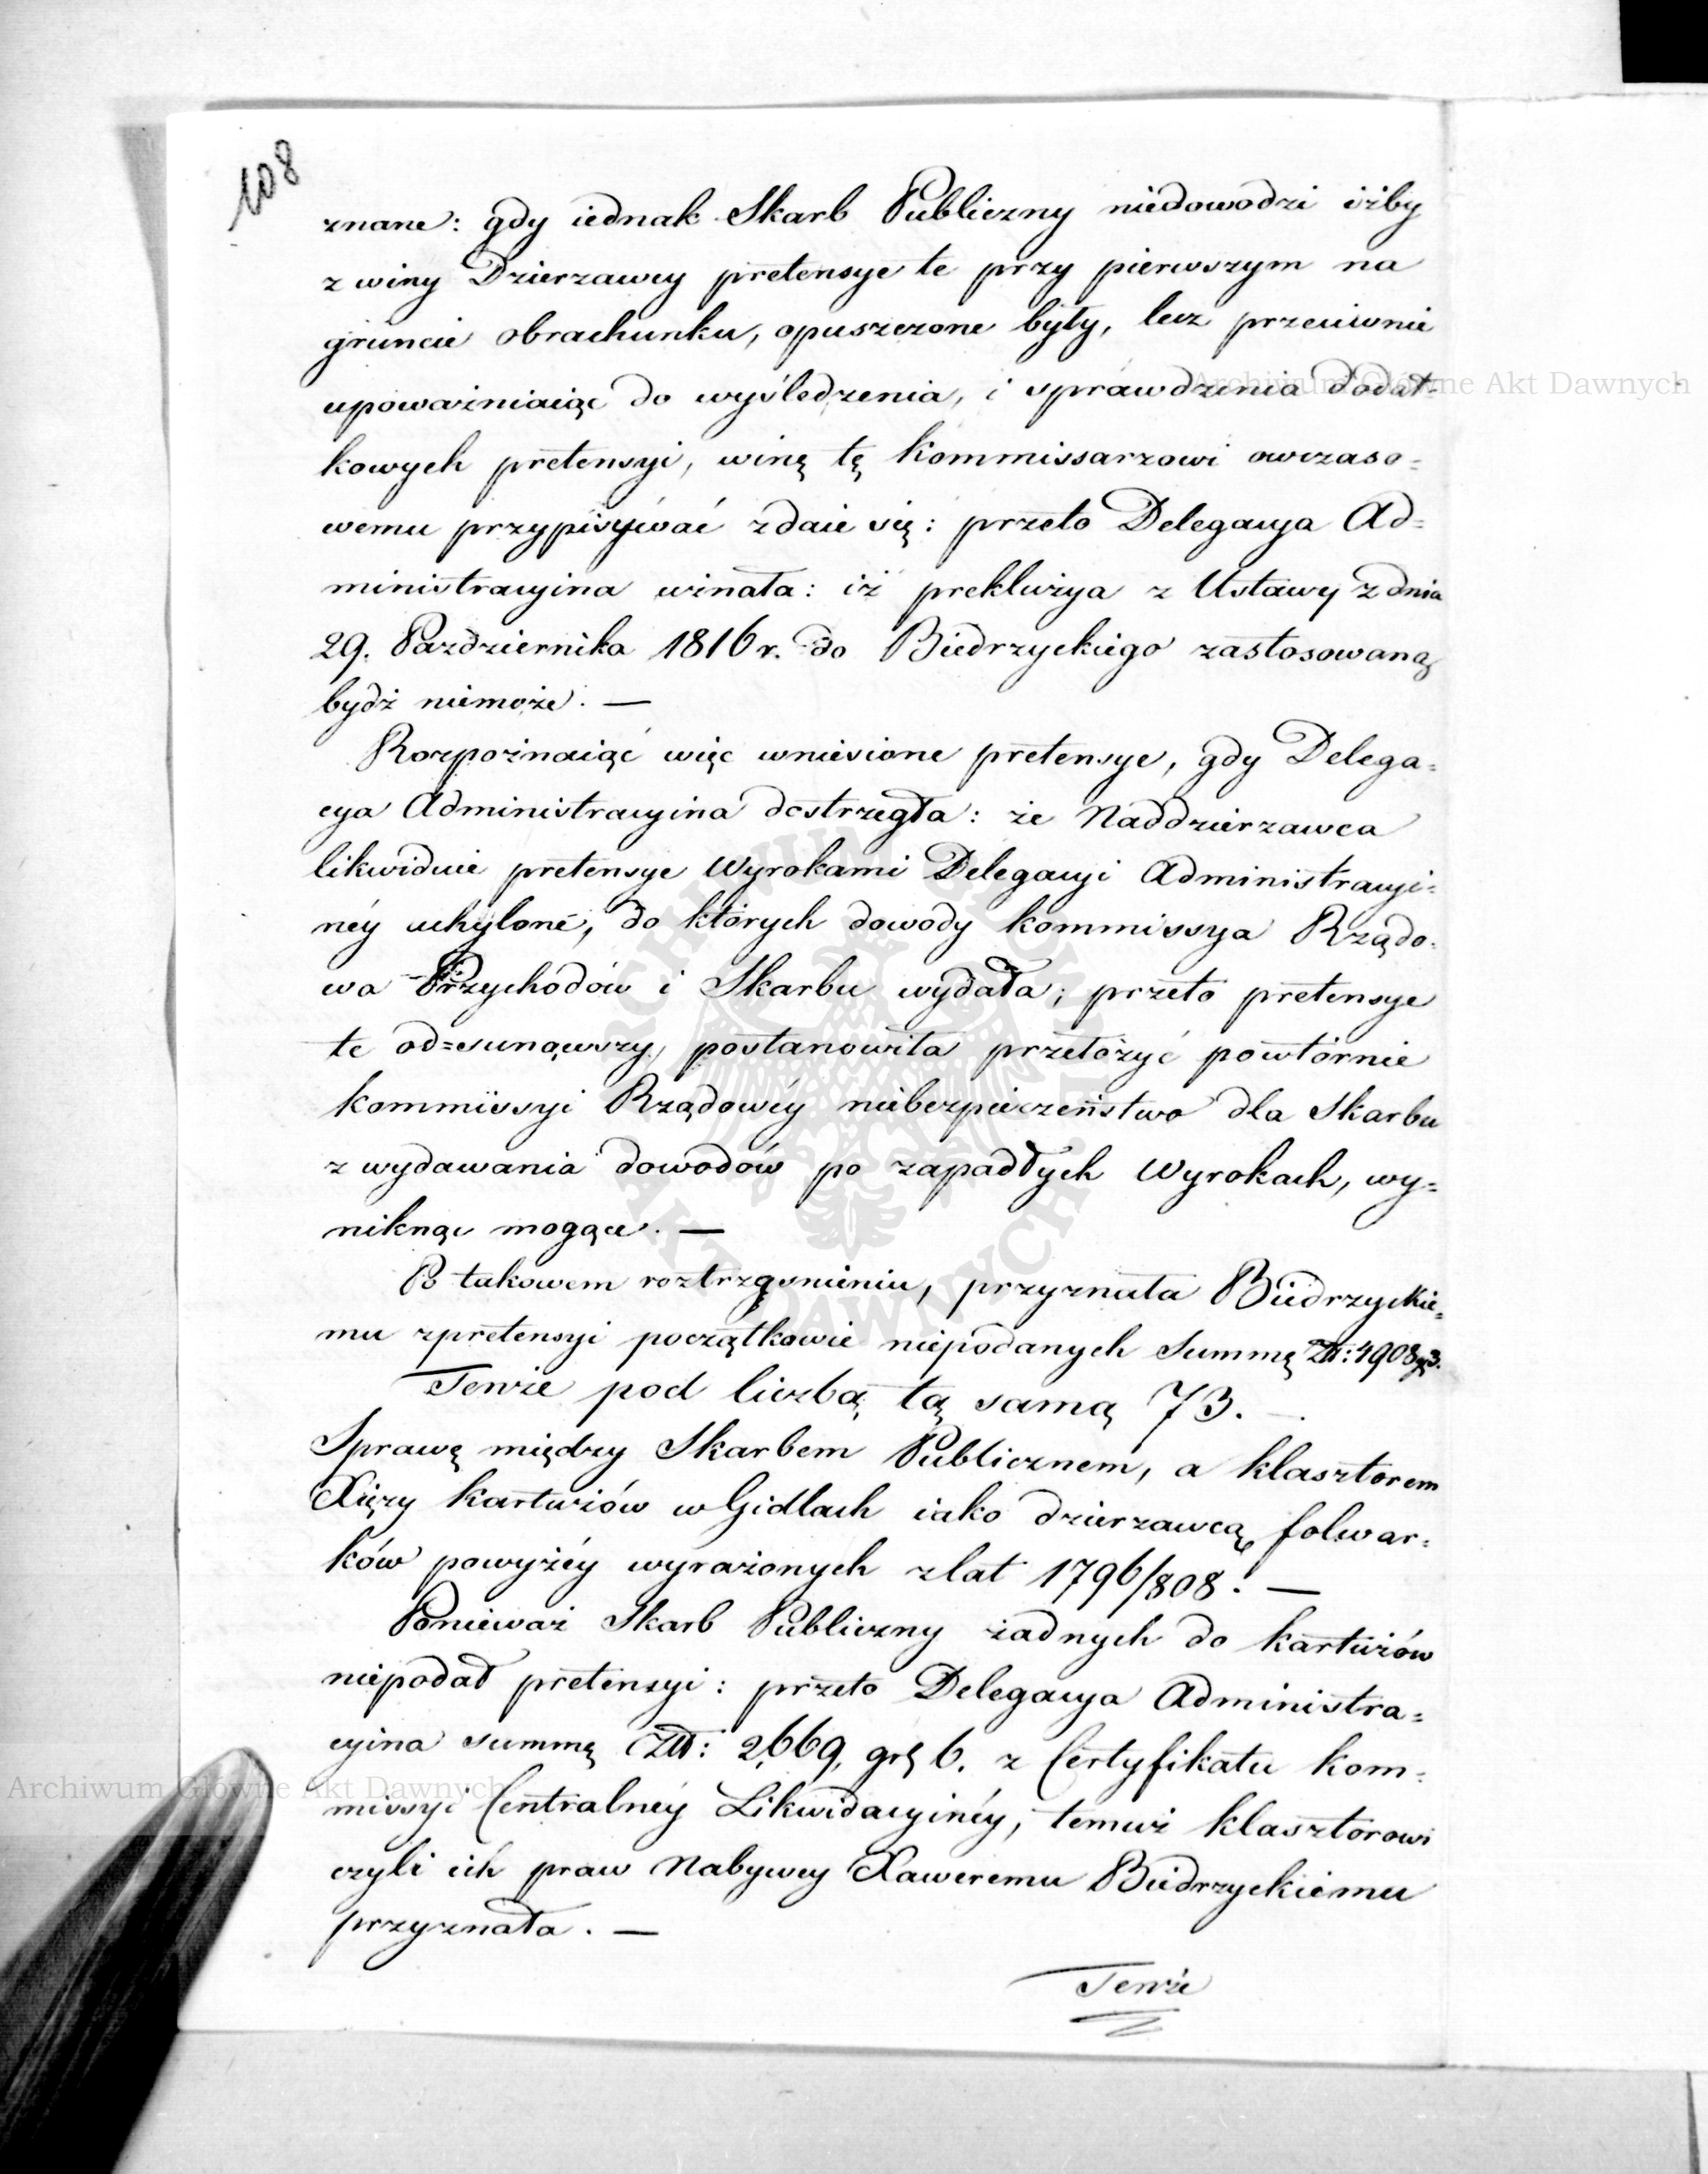 108
znane: gdy iednak Skarb Publiczny niedowodzi iżby
z winy Dzierzawcy pretensye te przy pierwszym na
gruncie obrachunku, opuszczone były, lecz przeciwnie
upoważniaiąc do wyśledzenia, i sprawdzenia dodat=
kowych pretensyi, winę tę Kommissarzowi owczaso=
wemu przypisywać zdaie się: przeto Delegacya Ad=
ministracyina uznała: iż prekluzya z Ustawy z dnia
29. Pazdziernika 1816 r. do Biedrzyckiego zastosowaną
bydź niemoże. —
Rozpoznaiąć więc wniesione pretensye, gdy Delega=
cya Administracyina dostrzegła: że Naddzierzawca
likwiduie pretensye Wyrokami Delegacyi Administracyi=
néy uchylone, do których dowody Kommissya Rządo=
wa Przychodów i Skarbu wydała; przeto pretensye
te od=sunąwszy, postanowiła przełożyć powtórnie
Kommissyi Rządowéy niebezpieczeństwo dla Skarbu
z wydawania dowodów po zapadłych Wyrokach, wy=
niknąc mogące. —
Po takowem roztrząśnieniu, przyznała Biedrzyckie=
mu z pretensyi początkowie niepodanych Summę Zł: 4908
Tenże pod liczbą tą samą 73. —.
Sprawę między Skarbem Publicznem, a klasztorem
Xięży Kartuzów w Gidlach iako dzierzawcą folwar=
ków powyżéy wyrażonych z lat 1796/808. —
Ponieważ Skarb Publiczny żadnych do Kartuzów
niepodał pretensyi: przeto Delegacya Administra=
cyina summę Zł: 2,669, gr 6. z Certyfikatu Kom=
missyi Centralnéy Likwidacyinéy, temuż klasztorowi
czyli ich praw Nabywcy Xaweremu Biedrzyckiemu
przyznała. —
Tenże
Archiwum Główne Akt Dawnych
Archiwum Główne Akt Dawnych
ARCHIWUM GŁÓWNE AKT DAWNYCH